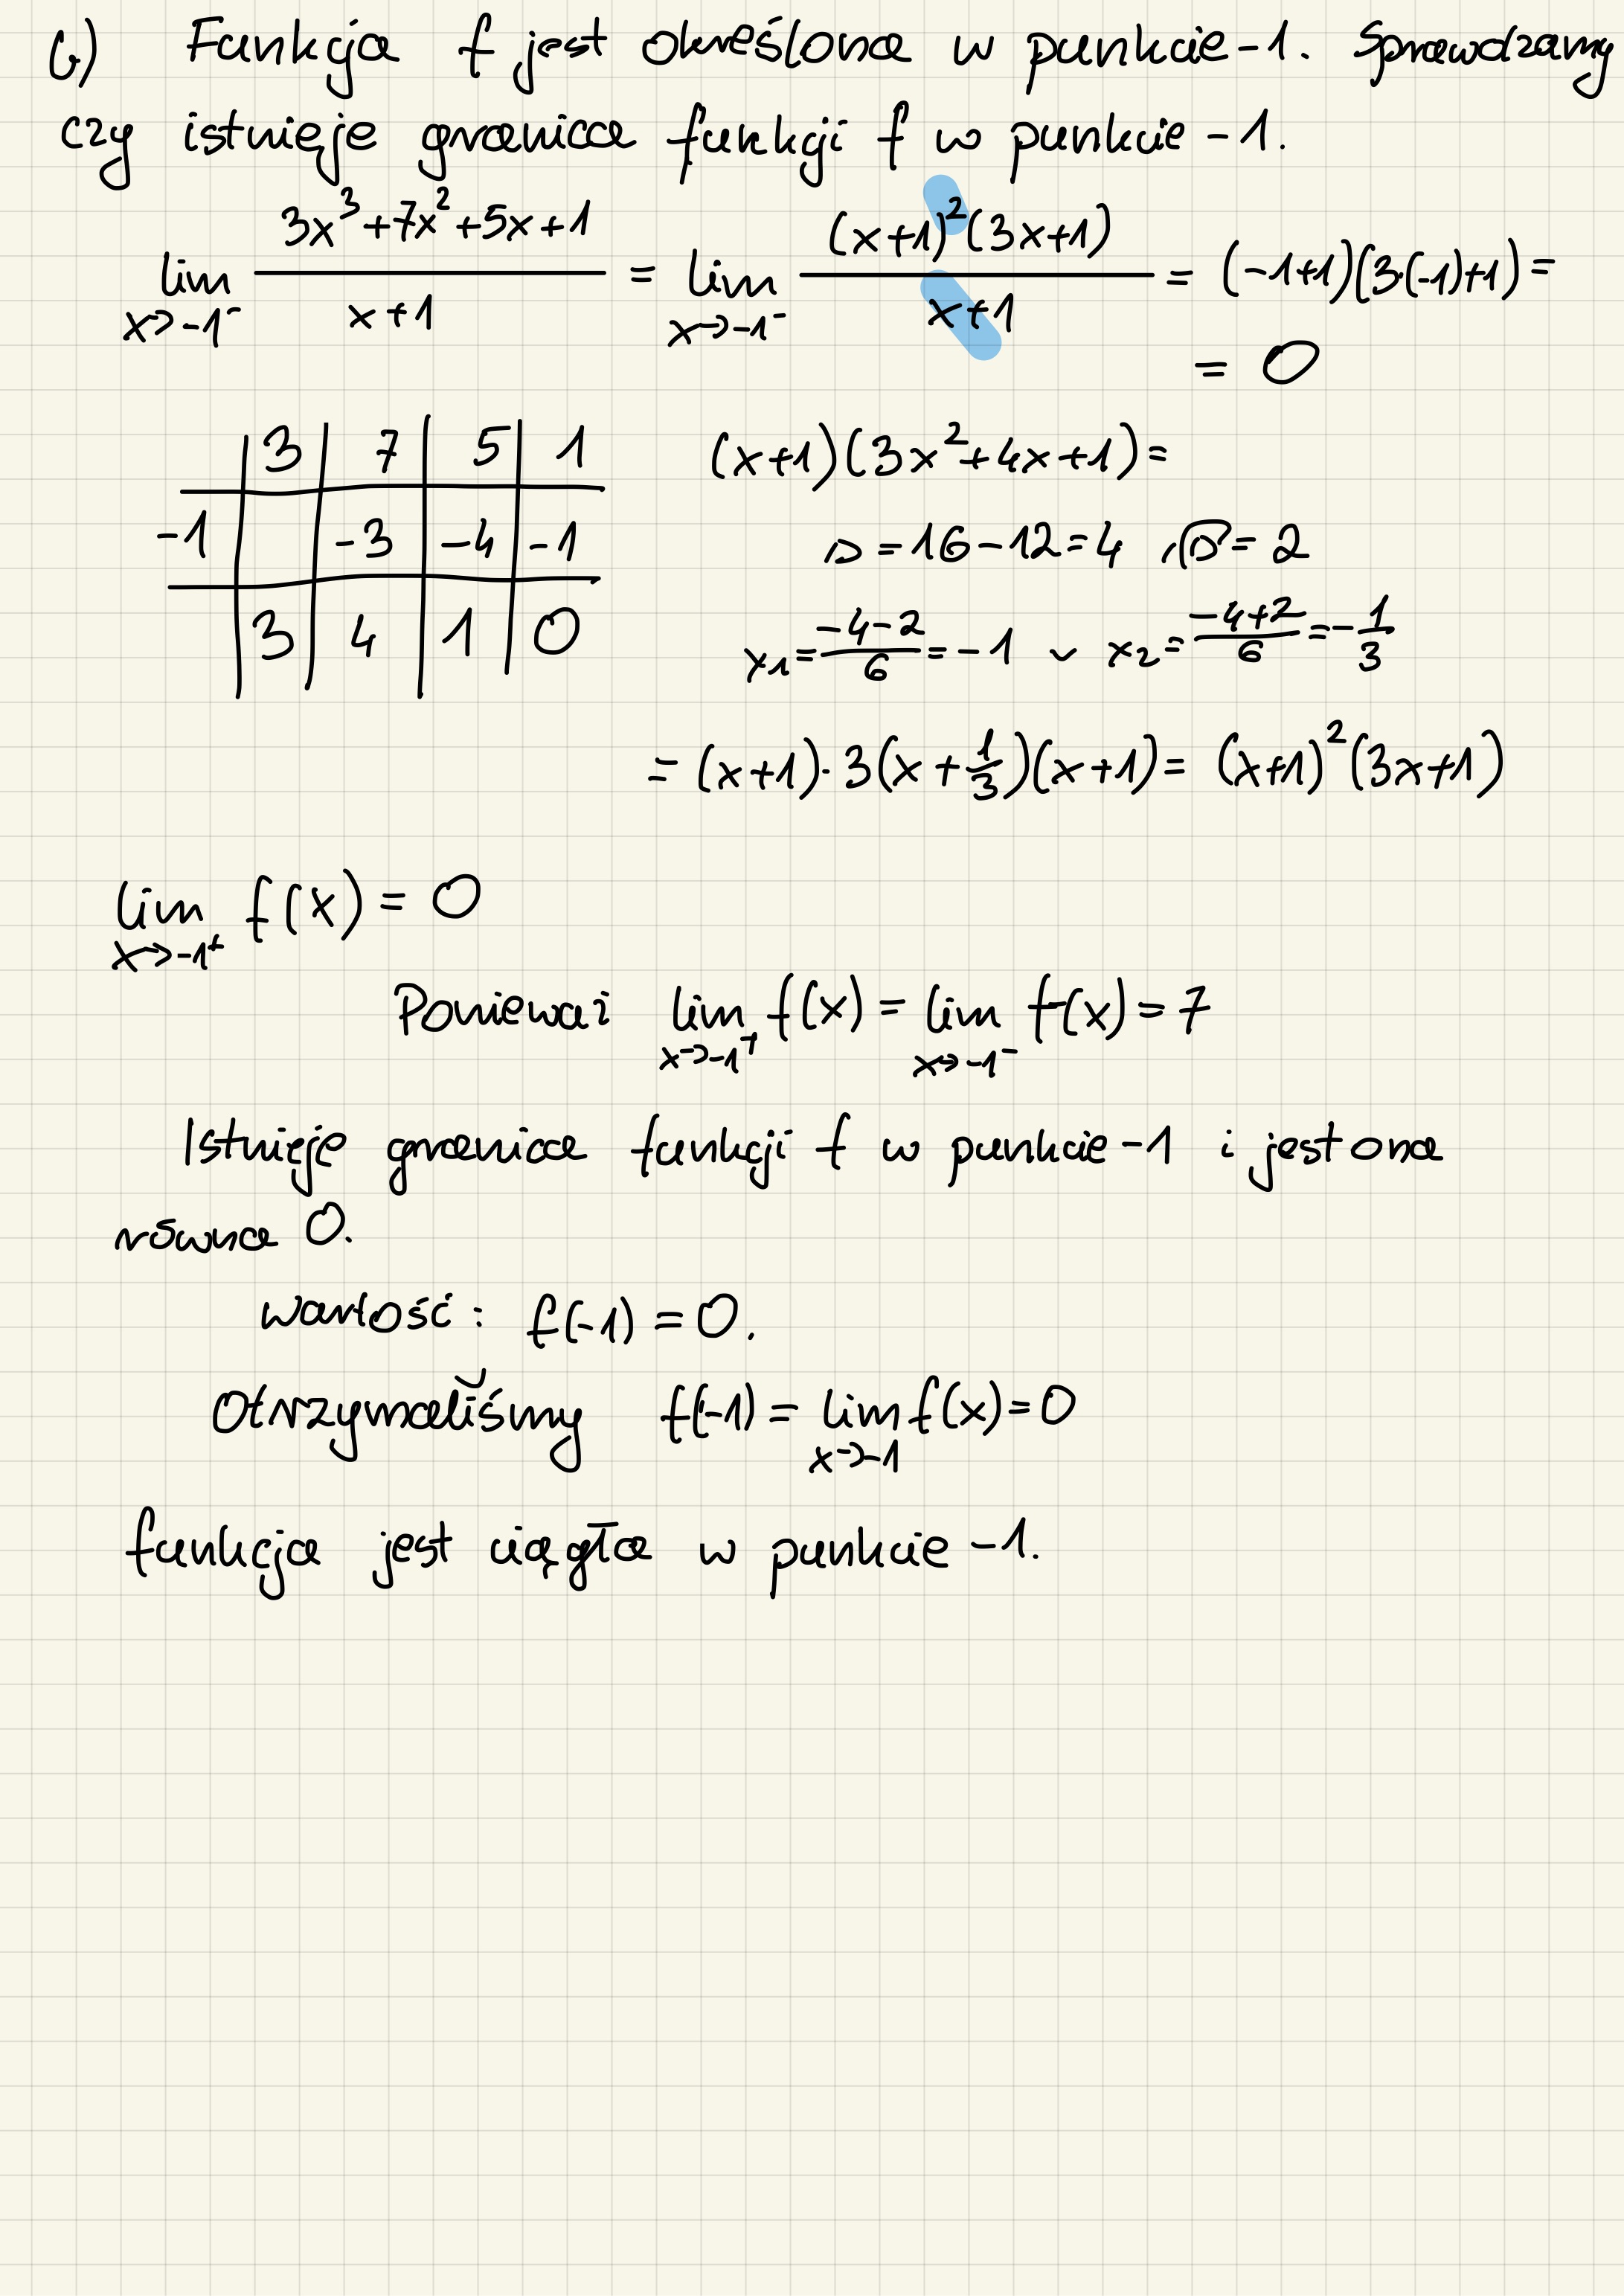 b) Funkcja f jest określona w punkcie -1. Sprawdzamy
czy istnieje granica funkcji f w punkcie -1.
lim x→-1⁻ (3x³+7x²+5x+1)/(x+1) = lim x→-1⁻ ((x+1)²(3x+1))/(x+1) = (-1+1)(3(-1)+1) =
= 0
3 | 7 | 5 | 1
-1 | | -3 | -4 | -1
3 | 4 | 1 | 0
(x+1)(3x²+4x+1) =
Δ = 16-12 = 4 √Δ = 2
x₁ = (-4-2)/6 = -1 ∨ x₂ = (-4+2)/6 = -1/3
= (x+1)·3(x+1/3)(x+1) = (x+1)²(3x+1)
lim x→-1⁺ f(x) = 0
Ponieważ lim x→-1⁺ f(x) = lim x→-1⁻ f(x) = 7
Istnieje granica funkcji f w punkcie -1 i jest ona
równa 0.
wartość: f(-1) = 0.
Otrzymaliśmy f(-1) = lim x→-1 f(x) = 0
funkcja jest ciągła w punkcie -1.